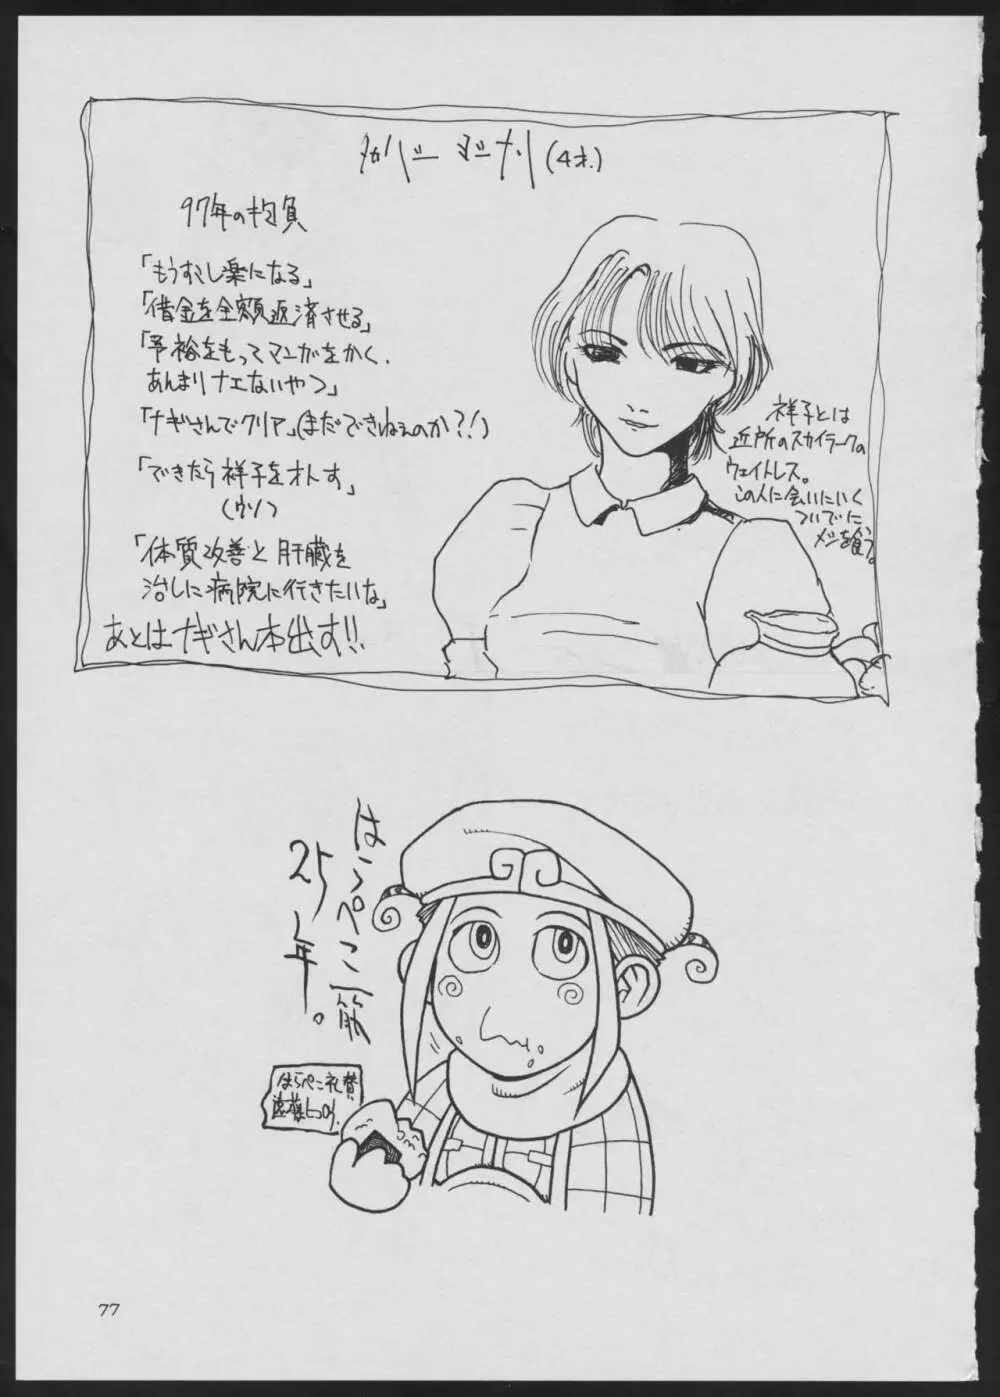 (4才.)
97年の抱負
「もうすこし楽になる」
「借金を全額返済させる」
「予裕をもってマンガをかく.
あんまりナエないやつ」
「ナギさんでクリア」(まだできねぇのか?!)
「できたら祥子をオトす」
(ウソ)
「体質改善と肝臓を
治しに病院に行きたいな」
あとはナギさん本出す!!
祥子とは
近所のスカイラークの
ウェイトレス。
この人に会いにいく
ついでに
メシを食う。
はらぺこ一筋
25年。
はらぺこ礼賛
77